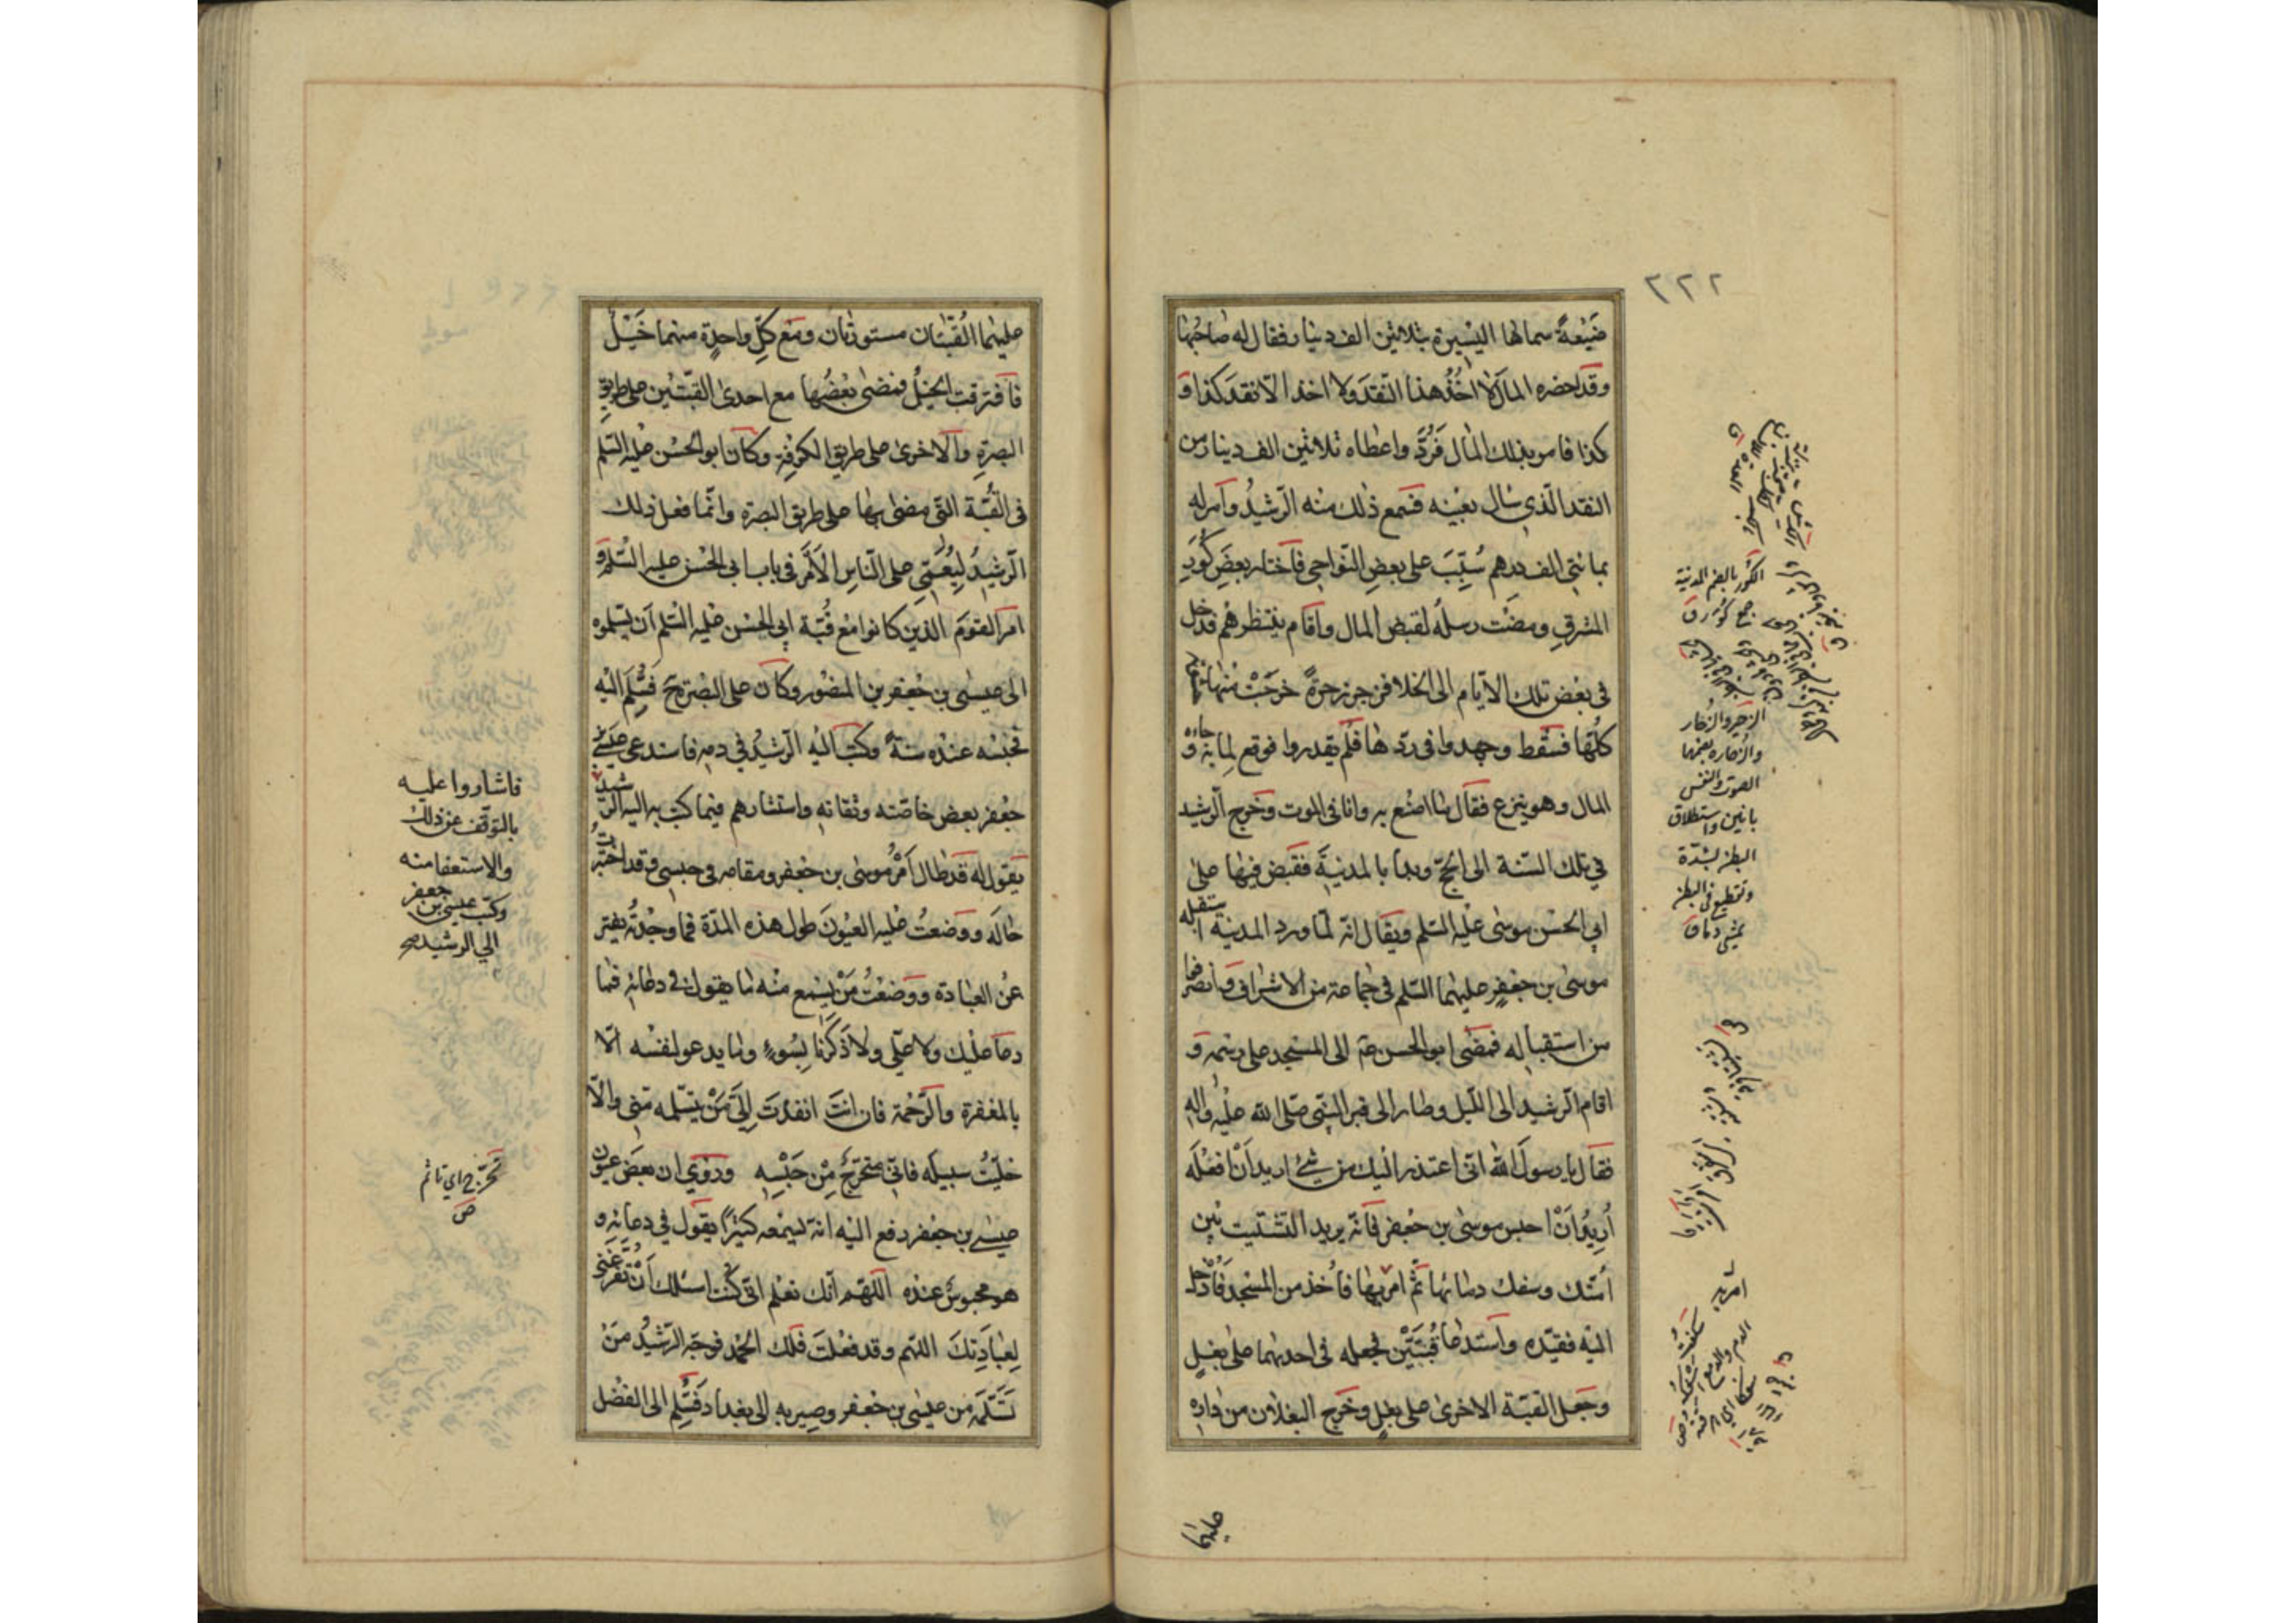 ٢٢٢
ضَيْعةً سماها اليسيرة بثلاثين الف دينار فقال له صاحبها
وقد احضره المال لا آخذ هذا النقد ولا اخذ الا نقد كذا و
كذا فامر بذلك المال فَرُدَّ واعطاه ثلاثين الف دينار من
النقد الّذي سال بعينه فسمع ذلك منه الرّشيدُ وآمر له
بمائتي الف درهم سُبِّبَ على بعض النّواحي فاختار بعضَ كُوَرِ
المشرق ومضت رسلُه لقبض المال واقام ينتظرهم فدخل
في بعض تلك الايّام الى الخلا فزحر زحرةً خرجَتْ منها
كلُّها فسقط وجهدوا في ردّها فلم يقدروا فوقع لما به وجاءه
المال وهو ينزع فقال ما اصنع به وانا في الموت وخرج الرّشيد
في تلك السّنة الى الحجّ وبدأ بالمدينة فقبض فيها على
ابي الحسن موسى عليه السّلم ويقال انه لمّا ورد المدينة استقبله
موسى بن جعفر عليهما السّلم في جماعة من الاشراف وانصرفوا
من استقباله فمضى ابو الحسن ع الى المسجد على رسمه و
اقام الرّشيد الى اللّيل وصار الى قبر النّبى صلى الله عليه واله
فقال يا رسول الله انى اعتذر اليك من شئ اريد ان افعله
أريدُ أنْ احبس موسى بن جعفر فانه يريد التشتيت بين
أمتك وسفك دمائها ثمّ امر به فأُخذ من المسجد فأُدخل
اليه فقيّده واستدعا قُبَّتَيْن فجعله في احدىهما على بغلٍ
وجعل القبّة الاخرى على بغلٍ وخرج البغلان من داره
عليهما
الكُور بالضم المدينة
جمع كُوَر ق
الزحير والزُحار
والزُحارة بضمهما
الصوت والنفس
بانين واستطلاق
البطن بشدّة
وتقطيع في البطن
يمشي دما ق
عليهما القُبّتان مستورتان ومع كلّ واحدةٍ منهما خَيْلٌ
فافترقت الخيلُ فمضى بعضُها مع احدى القبّتين على طريق
البصرةِ والاخرى على طريق الكوفة وكان ابو الحسن عليه السّلم
فى القُبّة التّى مضى بها على طريق البصرة وانّما فعل ذلك
الرّشيدُ ليُعَمّى على النّاس الأمْرَ في باب ابى الحسن عليه السّلم و
امر القومَ الّذين كانوا مع قُبّة ابي الحسن عليه السّلم أن يسلموه
الى عيسى بن جعفر بن المنصور وكان على البصرة ح فَسُلِّمَ اليْه
فحبسه عنده سنةً وكتب اليْه الرّشيدُ في دمه فاستدعى عيسى بن
جعفر بعض خاصّته وثقاته واستشارهم فيما كتب به اليه الرّشيد
يقول له قد طال أمْرُ موسى بن جعفر ومقامه في حبسى وقد اختبرتُ
حاله ووضعتُ عليه العيُونَ طول هذه المدّة فما وجدتُه يفتر
عن العبادة ووضعْتُ مَنْ يسْمع منه ما يقول في دعائه فما
دعا عليك ولا علىّ ولا ذكَرَنا بسُوءٍ وما يدعو لنفسه الّا
بالمغفرة والرّحْمة فان انتَ انفذت إلىَّ مَنْ يتسلّمه منى والّا
خليّتُ سبيلَه فانّي متحرّجٌ مِنْ حَبْسِه وروي ان بعض عيون
عيسى بن جعفر رفع اليْه انه ليسمعه كثيرًا يقول في دعائه و
هو محبوسٌ عنده اللّهم انّك تعْلم انّى كنت اسئلك أنْ تفرّغني
لعِبادَتِكَ اللهم وقد فعلتَ فلك الحمْد فوجّه الرّشيدُ مَنْ
تسَلّمَه من عيسى بن جعفر وصير به الى بغداد فسُلّم الى الفضل
فاشاروا عليه
بالتوقّف عن ذلك
والاستعفا منه
وكتب عيسى بن جعفر
الي الرشيد صح
تحرّج اي تاثم
ص